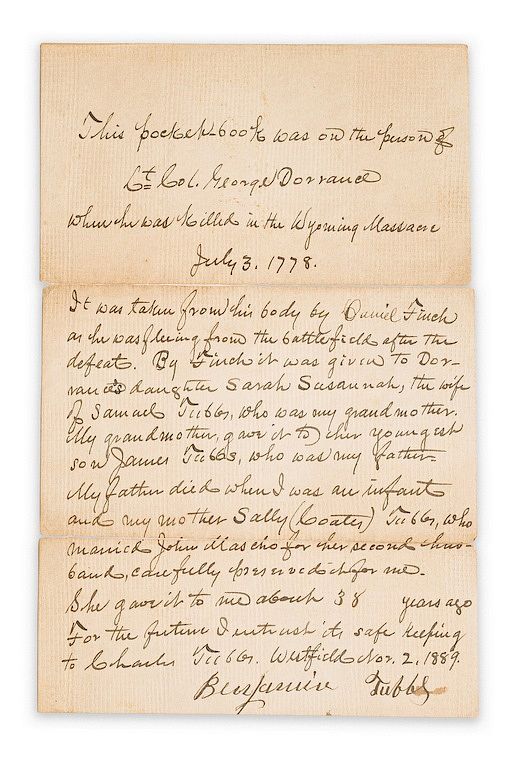 This pocket-book was on the person of
Lt. Col. George Dorrance
when he was killed in the Wyoming Massacre
July 3. 1778.
It was taken from his body by Daniel Finch
as he was fleeing from the battlefield after the
defeat. By Finch it was given to Dor-
rance's daughter Sarah Susannah, the wife
of Samuel Tubbs, who was my grandmother.
My grandmother, gave it to her youngest
son James Tubbs, who was my father.
My father died when I was an infant
and my mother Sally (Coates) Tubbs, who
married John Mascho for her second hus-
band, carefully preserved it for me.
She gave it to me about 38 years ago
For the future I entrust its safe keeping
to Charles Tubbs. Westfield Nov. 2, 1889.
Benjamin Tubbs